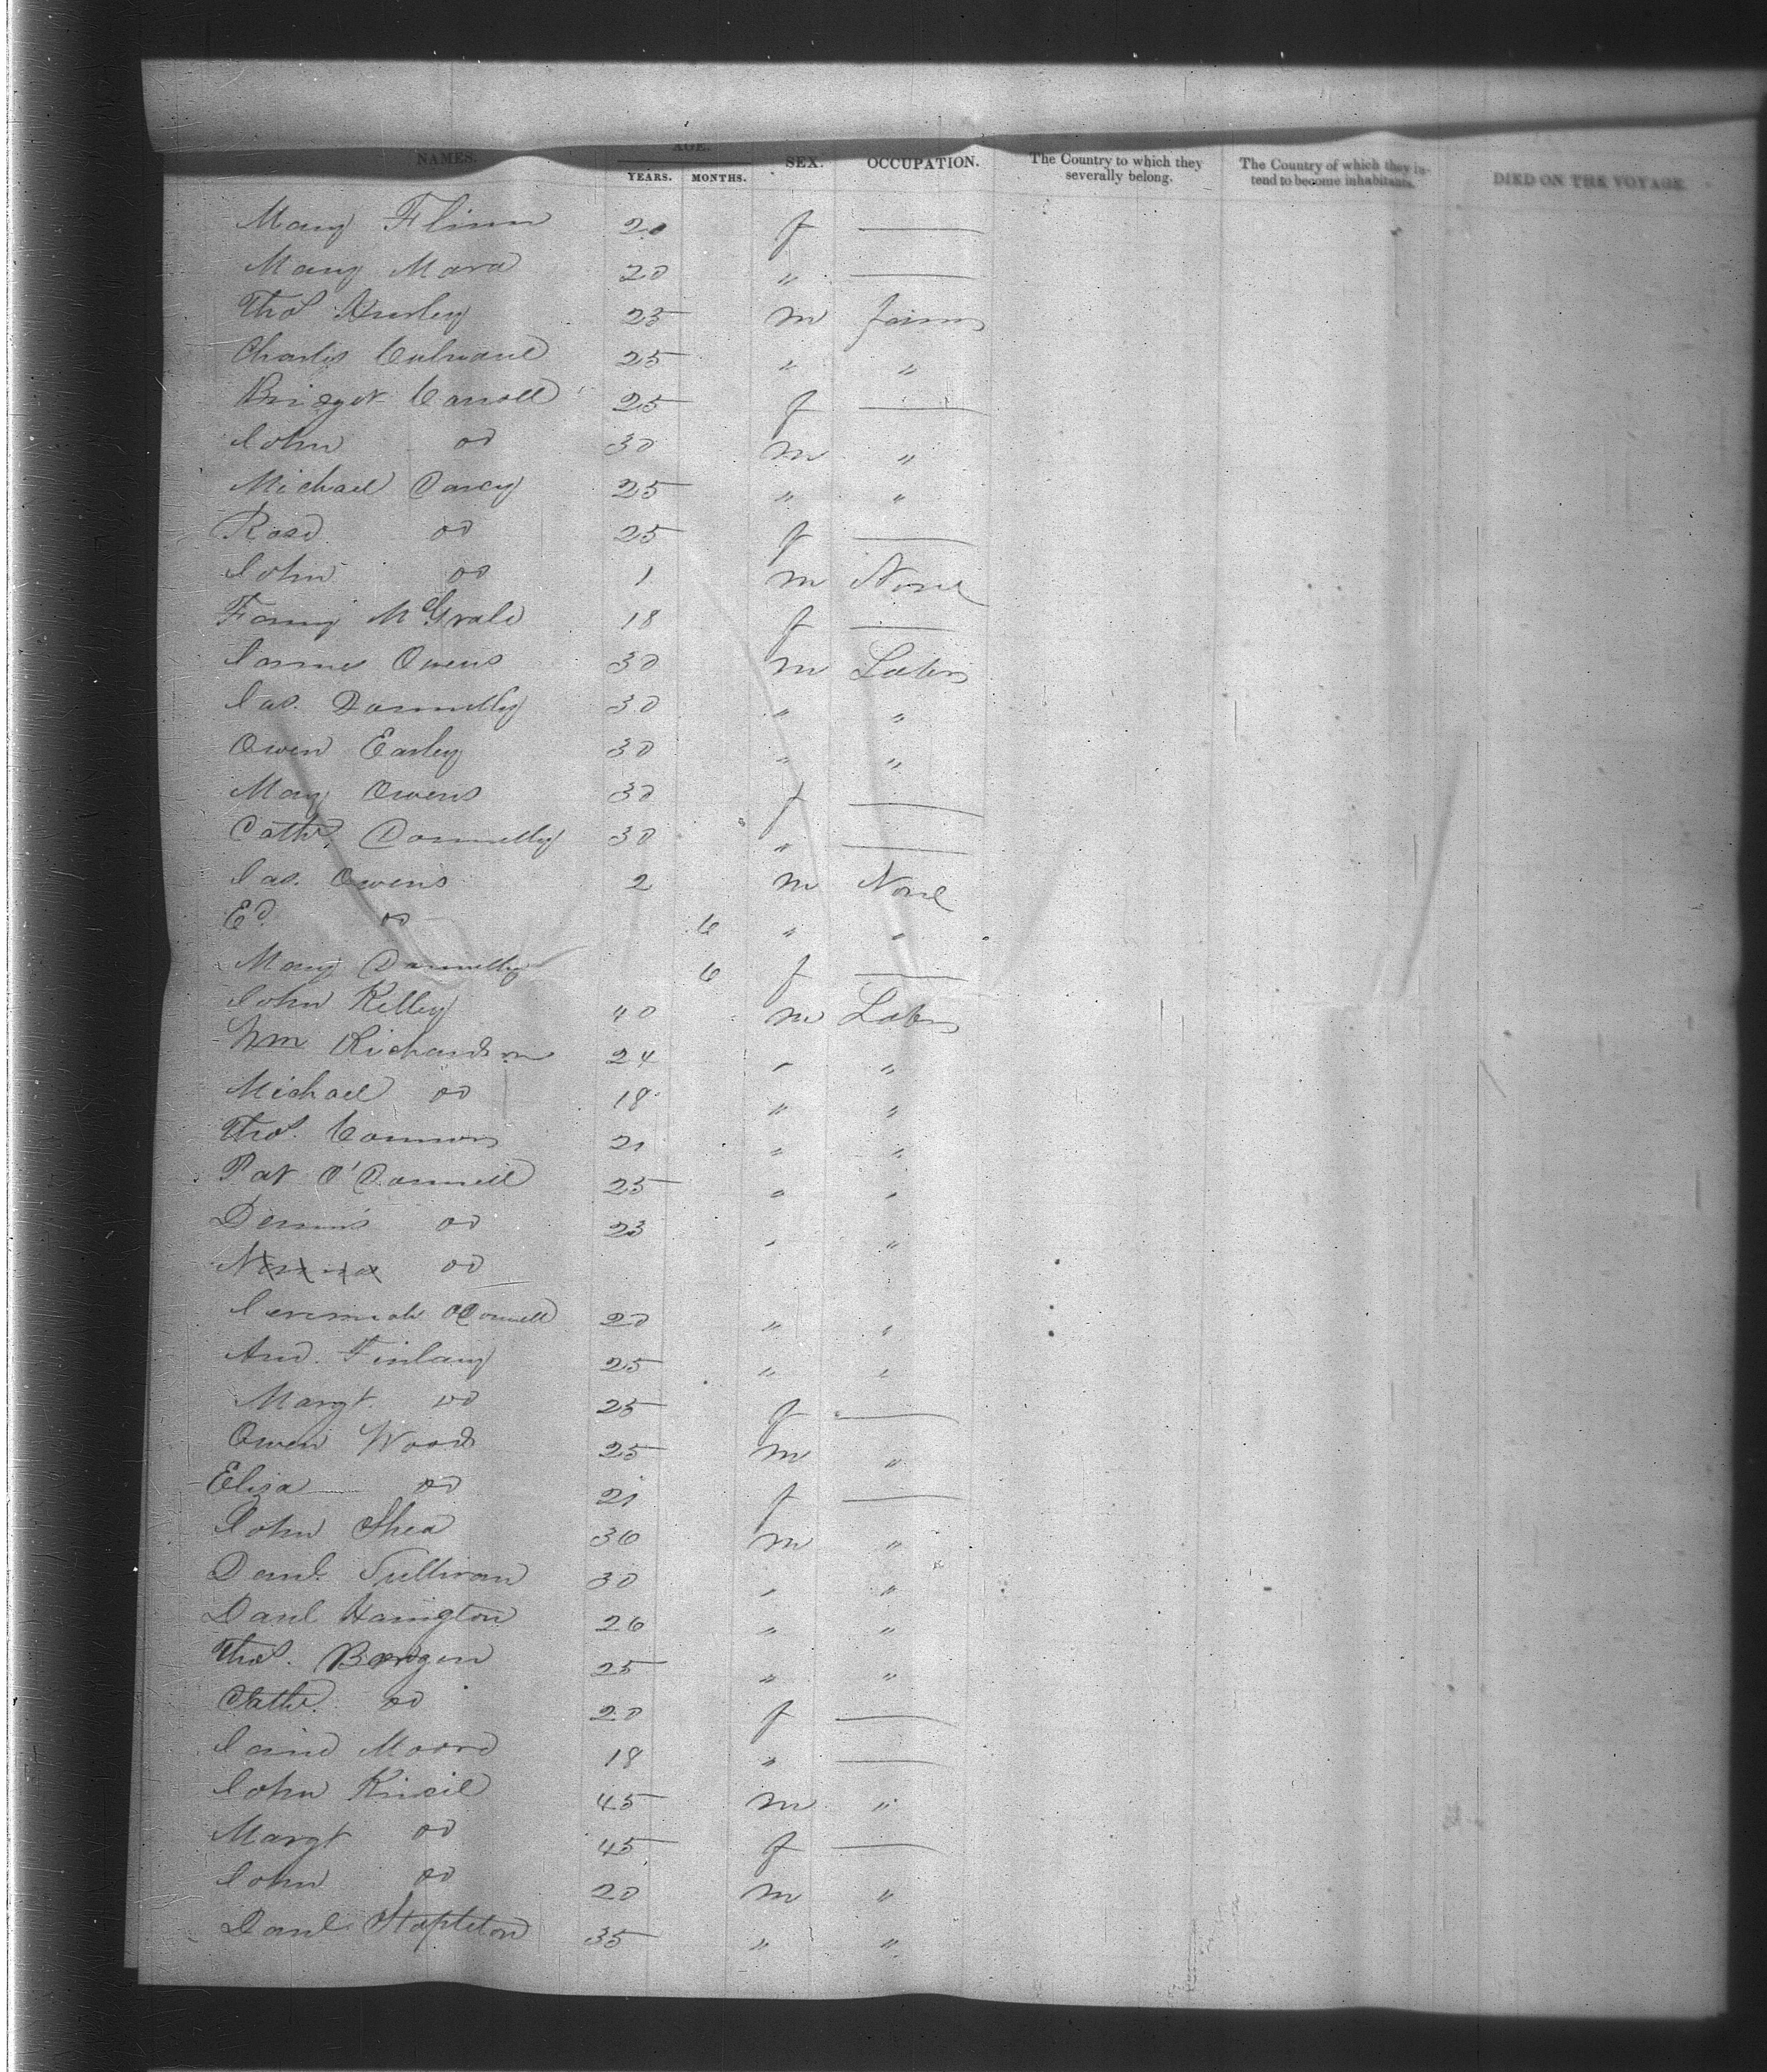 NAMES. AGE. YEARS. MONTHS. SEX. OCCUPATION. The Country to which they severally belong. The Country of which they intend to become inhabitants. DIED ON THE VOYAGE
Mary Flinn 20 f —
Mary Mara 20 " —
Thos Hurley 25 m farmr
Charles 25 " "
Bridget Carroll 25 f —
John do 30 m "
Michael Darcy 25 " "
Rose do 25 f —
John do 1 m None
Fanny McGrale 18 f —
James Owens 30 m Labr
Jas. Donnelly 30 " "
Owen Earley 30 " "
Mary Owens 30 f —
Cathe Donnelly 30 " —
Jas. Owens 2 m None
Ed. do 6 " "
Mary Donnelly 6 f —
John Kelley 40 m Labr
Wm Richardson 24 " "
Michael do 18 " "
Thos. Connors 21 " "
Pat O'Donnell 25 " "
Dennis do 23 " "
do
Jeremiah O'Donnell 20 " "
And. Finlay 25 " "
Margt. do 25 f —
Owen Woods 25 m "
Eliza do 21 f —
John Shea 36 m "
Danl. Sullivan 30 " "
Danl Harrington 26 " "
Thos. Bergen 25 " "
Cathe. do 20 f —
Jane Moore 18 " —
John 45 m "
Margt do 45 f —
John do 20 m "
Danl Stapleton 35 " "